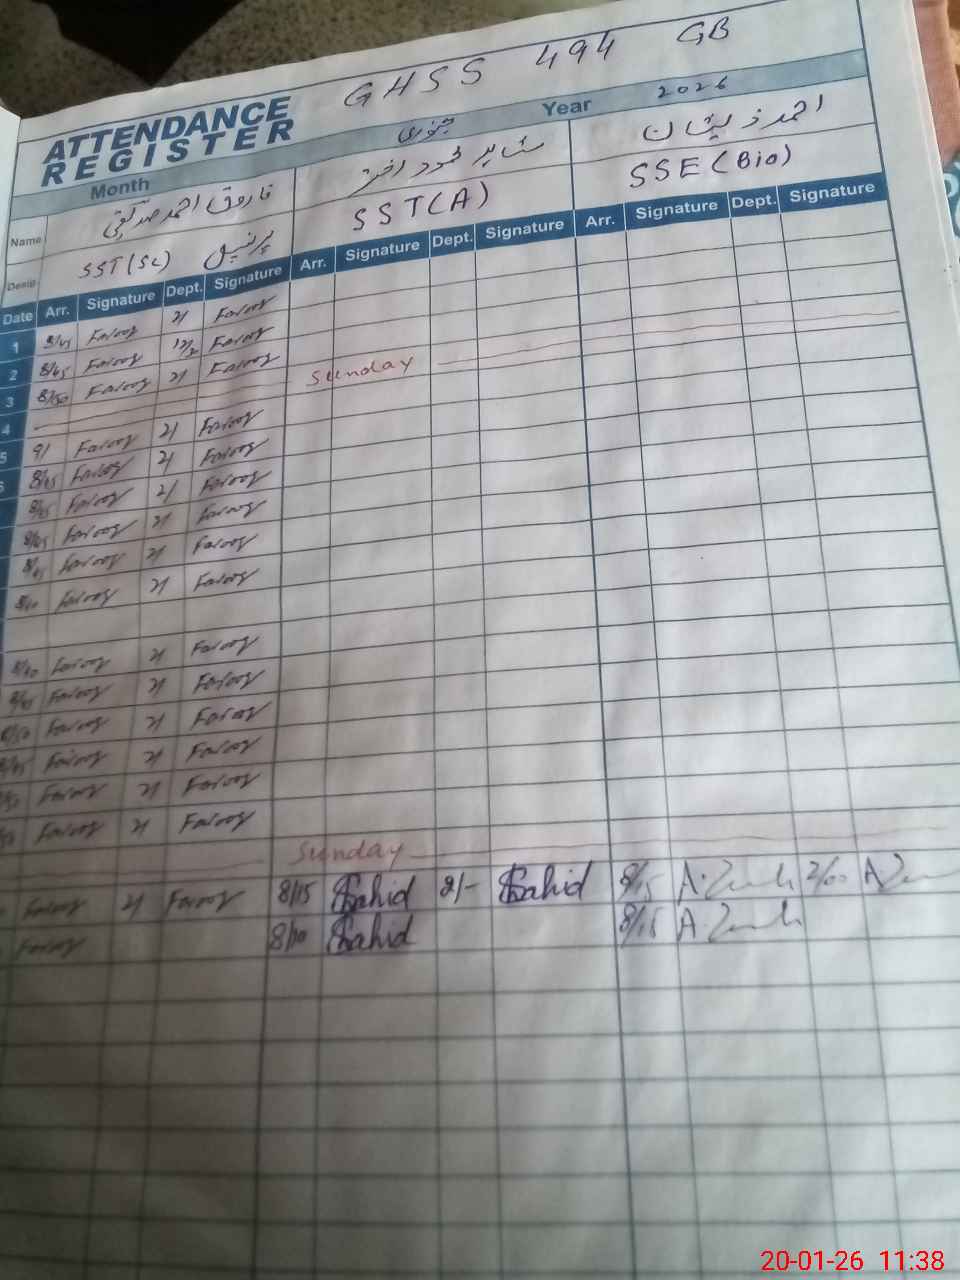 GHSS 494 GB
ATTENDANCE
REGISTER
Month جنوری Year 2026
Name فاروق احمد صدیقی شاہد محمود اختر احمد ذیشان
Desig. SST(Sc) پرنسپل SST(A) SSE(Bio)
Date Arr. Signature Dept. Signature Arr. Signature Dept. Signature Arr. Signature Dept. Signature
1 8/45 Farooq 2/ Farooq
2 8/45 Farooq 12/2 Farooq
3 8/50 Farooq 2/ Farooq
4 Sunday
5 9/ Farooq 2/ Farooq
6 8/45 Farooq 2/ Farooq
8/45 Farooq 2/ Farooq
8/45 Farooq 2/ Farooq
8/45 Farooq 2/ Farooq
Farooq 2/ Farooq
Farooq 2/ Farooq
Farooq 2/ Farooq
8/50 Farooq 2/ Farooq
Farooq 2/ Farooq
Farooq 2/ Farooq
Farooq 2/ Farooq
Sunday
Farooq 2/ Farooq 8/15 Shahid 2/- Shahid 8/15 2/00
Farooq 8/10 Shahid 8/15
20-01-26 11:38